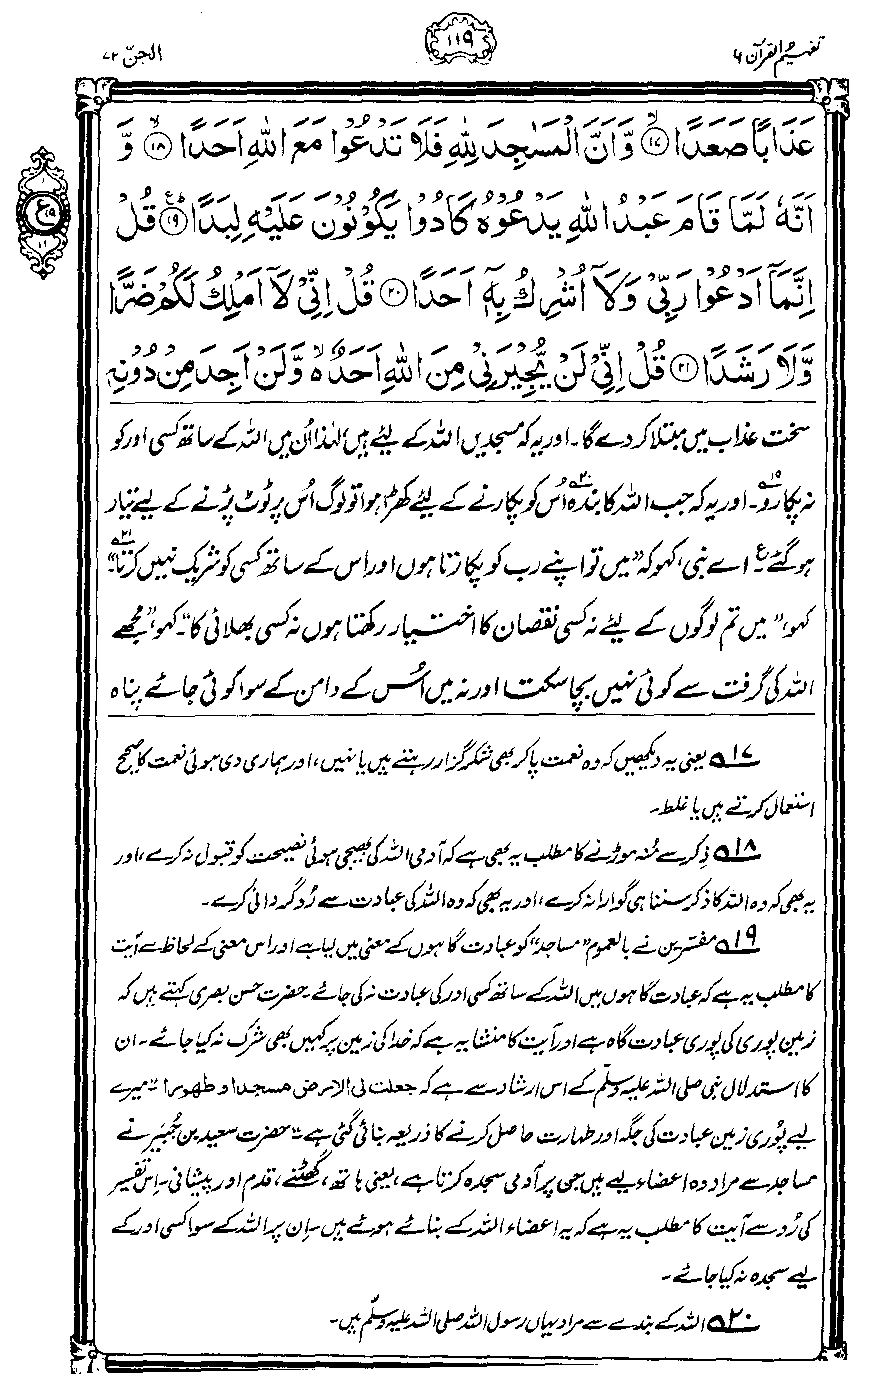 تفہیم القرآن ۶
۱۱۹
الجنّ ۷۲
عَذَابًا صَعَدًا ۙ﴿۱۷﴾ وَّاَنَّ الْمَسٰجِدَ لِلّٰهِ فَلَا تَدْعُوْا مَعَ اللّٰهِ اَحَدًا ۙ﴿۱۸﴾ وَّ
اَنَّهٗ لَمَّا قَامَ عَبْدُ اللّٰهِ يَدْعُوْهُ كَادُوْا يَكُوْنُوْنَ عَلَيْهِ لِبَدًا ؕ﴿۱۹﴾ قُلْ
اِنَّمَآ اَدْعُوْا رَبِّيْ وَلَآ اُشْرِكُ بِهٖٓ اَحَدًا ﴿۲۰﴾ قُلْ اِنِّيْ لَآ اَمْلِكُ لَكُمْ ضَرًّا
وَّلَا رَشَدًا ﴿۲۱﴾ قُلْ اِنِّيْ لَنْ يُّجِيْرَنِيْ مِنَ اللّٰهِ اَحَدٌ ۙ۬ وَّلَنْ اَجِدَ مِنْ دُوْنِهٖ
ع
سخت عذاب میں مبتلا کر دے گا۔ اور یہ کہ مسجدیں اللہ کے لیے ہیں، لہٰذا اُن میں اللہ کے ساتھ کسی اور کو
نہ پکارو۱۹؎۔ اور یہ کہ جب اللہ کا بندہ۲۰؎ اُس کو پکارنے کے لیے کھڑا ہوا تو لوگ اُس پر ٹوٹ پڑنے کے لیے تیار
ہو گئے۔ؑ اے نبی، کہو کہ "میں تو اپنے رب کو پکارتا ہوں اور اس کے ساتھ کسی کو شریک نہیں کرتا۲۱؎"۔
کہو، "میں تم لوگوں کے لیے نہ کسی نقصان کا اختیار رکھتا ہوں نہ کسی بھلائی کا"۔ کہو، "مجھے
اللہ کی گرفت سے کوئی نہیں بچا سکتا اور نہ میں اُس کے دامن کے سوا کوئی جائے پناہ
۱۷؎ یعنی یہ دیکھیں کہ وہ نعمت پا کر بھی شکر گزار رہتے ہیں یا نہیں، اور ہماری دی ہوئی نعمت کا صحیح
استعمال کرتے ہیں یا غلط۔
۱۸؎ ذِکر سے مُنہ موڑنے کا مطلب یہ بھی ہے کہ آدمی اللہ کی بھیجی ہوئی نصیحت کو قبول نہ کرے، اور
یہ بھی کہ وہ اللہ کا ذکر سننا ہی گوارا نہ کرے، اور یہ بھی کہ وہ اللہ کی عبادت سے رُوگردانی کرے۔
۱۹؎ مفسّرین نے بالعموم "مساجد" کو عبادت گاہوں کے معنی میں لیا ہے اور اس معنی کے لحاظ سے آیت
کا مطلب یہ ہے کہ عبادت گاہوں میں اللہ کے ساتھ کسی اور کی عبادت نہ کی جائے۔ حضرت حسن بصری کہتے ہیں کہ
زمین پوری کی پوری عبادت گاہ ہے اور آیت کا منشا یہ ہے کہ خدا کی زمین پر کہیں بھی شرک نہ کیا جائے۔ ان
کا استدلال نبی صلی اللہ علیہ وسلّم کے اس ارشاد سے ہے کہ جعلت لی الارض مسجدا و طہورا "میرے
لیے پُوری زمین عبادت کی جگہ اور طہارت حاصل کرنے کا ذریعہ بنائی گئی ہے"۔ حضرت سعید بن جُبَیر نے
مساجد سے مراد وہ اعضاء لیے ہیں جن پر آدمی سجدہ کرتا ہے، یعنی ہاتھ، گھٹنے، قدم اور پیشانی۔ اِس تفسیر
کی رُو سے آیت کا مطلب یہ ہے کہ یہ اعضاء اللہ کے بنائے ہوئے ہیں۔ اِن پر اللہ کے سوا کسی اور کے
لیے سجدہ نہ کیا جائے۔
۲۰؎ اللہ کے بندے سے مراد یہاں رسول اللہ صلی اللہ علیہ وسلّم ہیں۔